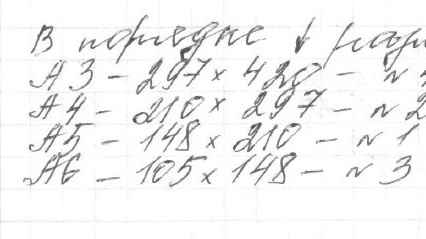 В порядке ↓ разм
А3 – 297 × 420 – №
А4 – 210 × 297 – № 2
А5 – 148 × 210 – № 1
А6 – 105 × 148 – № 3